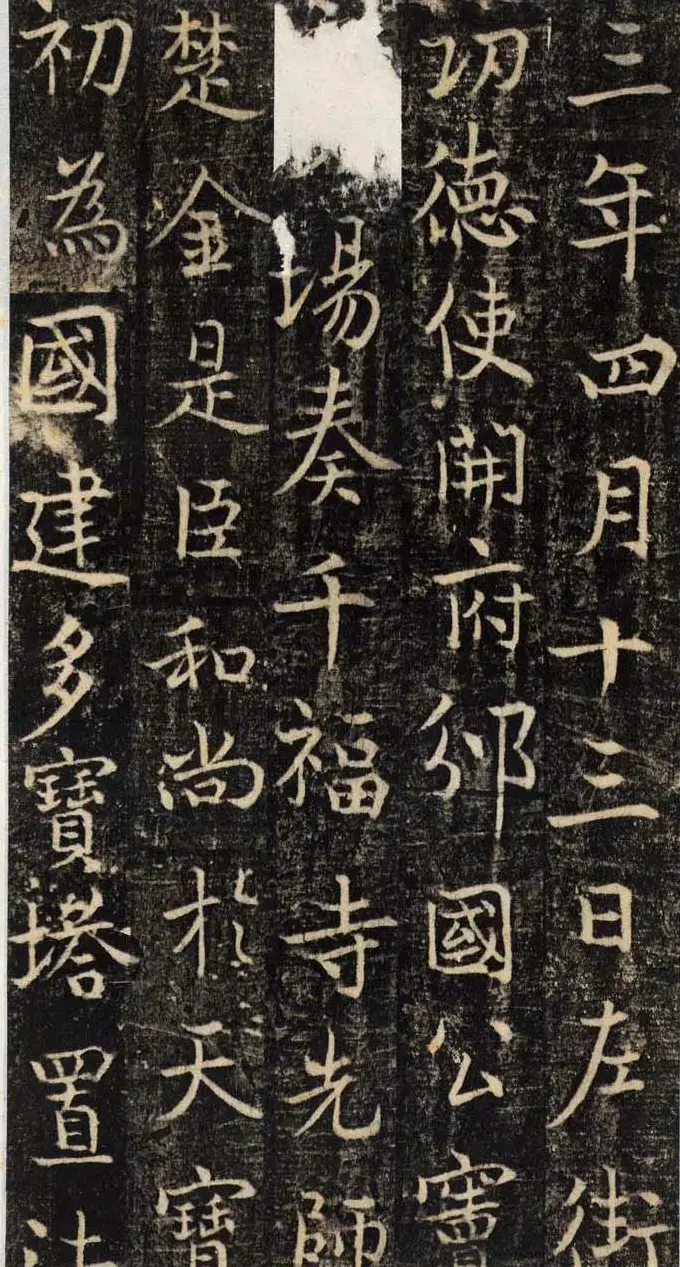 三年四月十三日左街
功德使開府邠國公竇
場奏千福寺先師
楚金是臣和尚於天寶
初為國建多寶塔置法